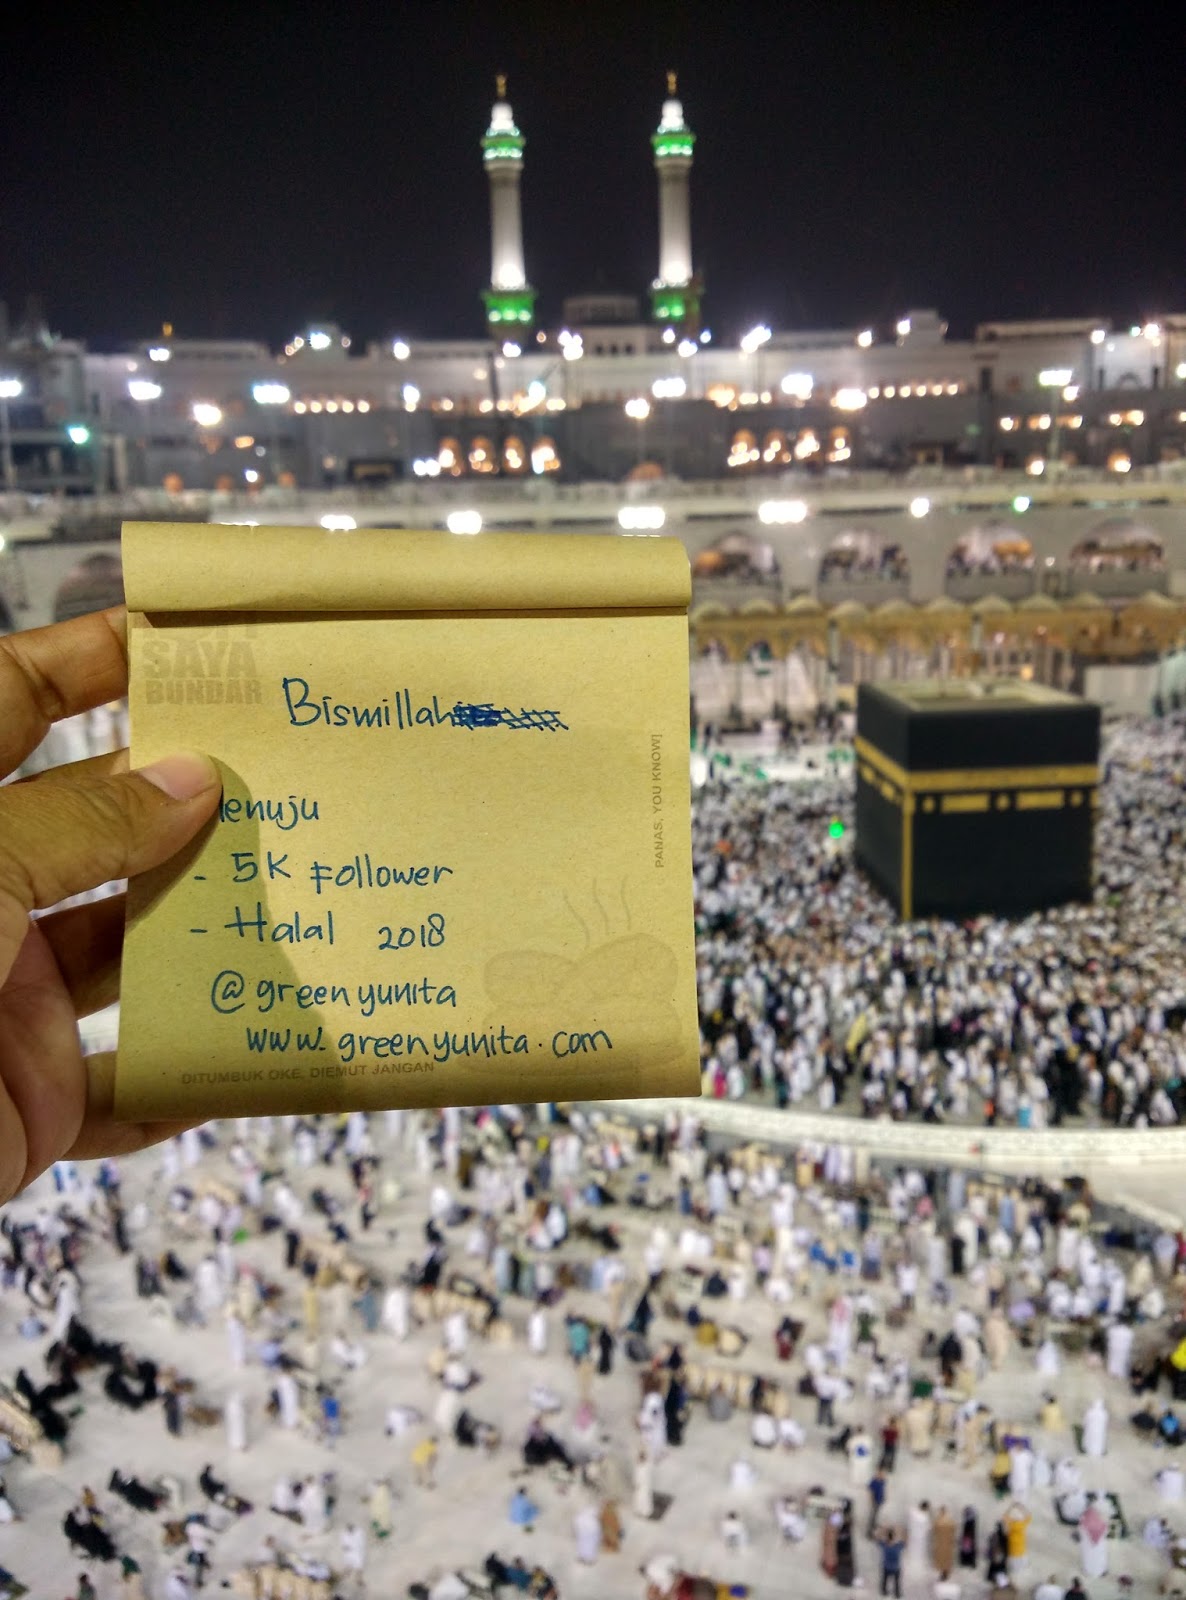 SAYA
BUNDAR
Bismillah
enuju
- 5K Follower
- Halal 2018
@greenyunita
www.greenyunita.com
PANAS, YOU KNOW]
DITUMBUK OKE, DIEMUT JANGAN